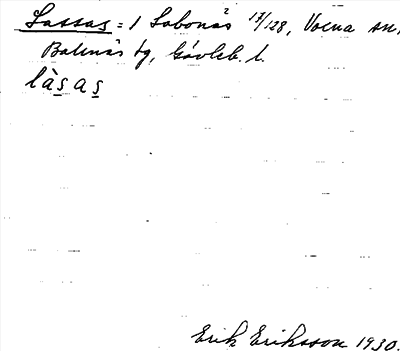 Lassas = 1 Sabonäs² 17/128, Voxna sn,
Ballnäs tg, Gävleb. l.
làsas
Erik Eriksson 1930.